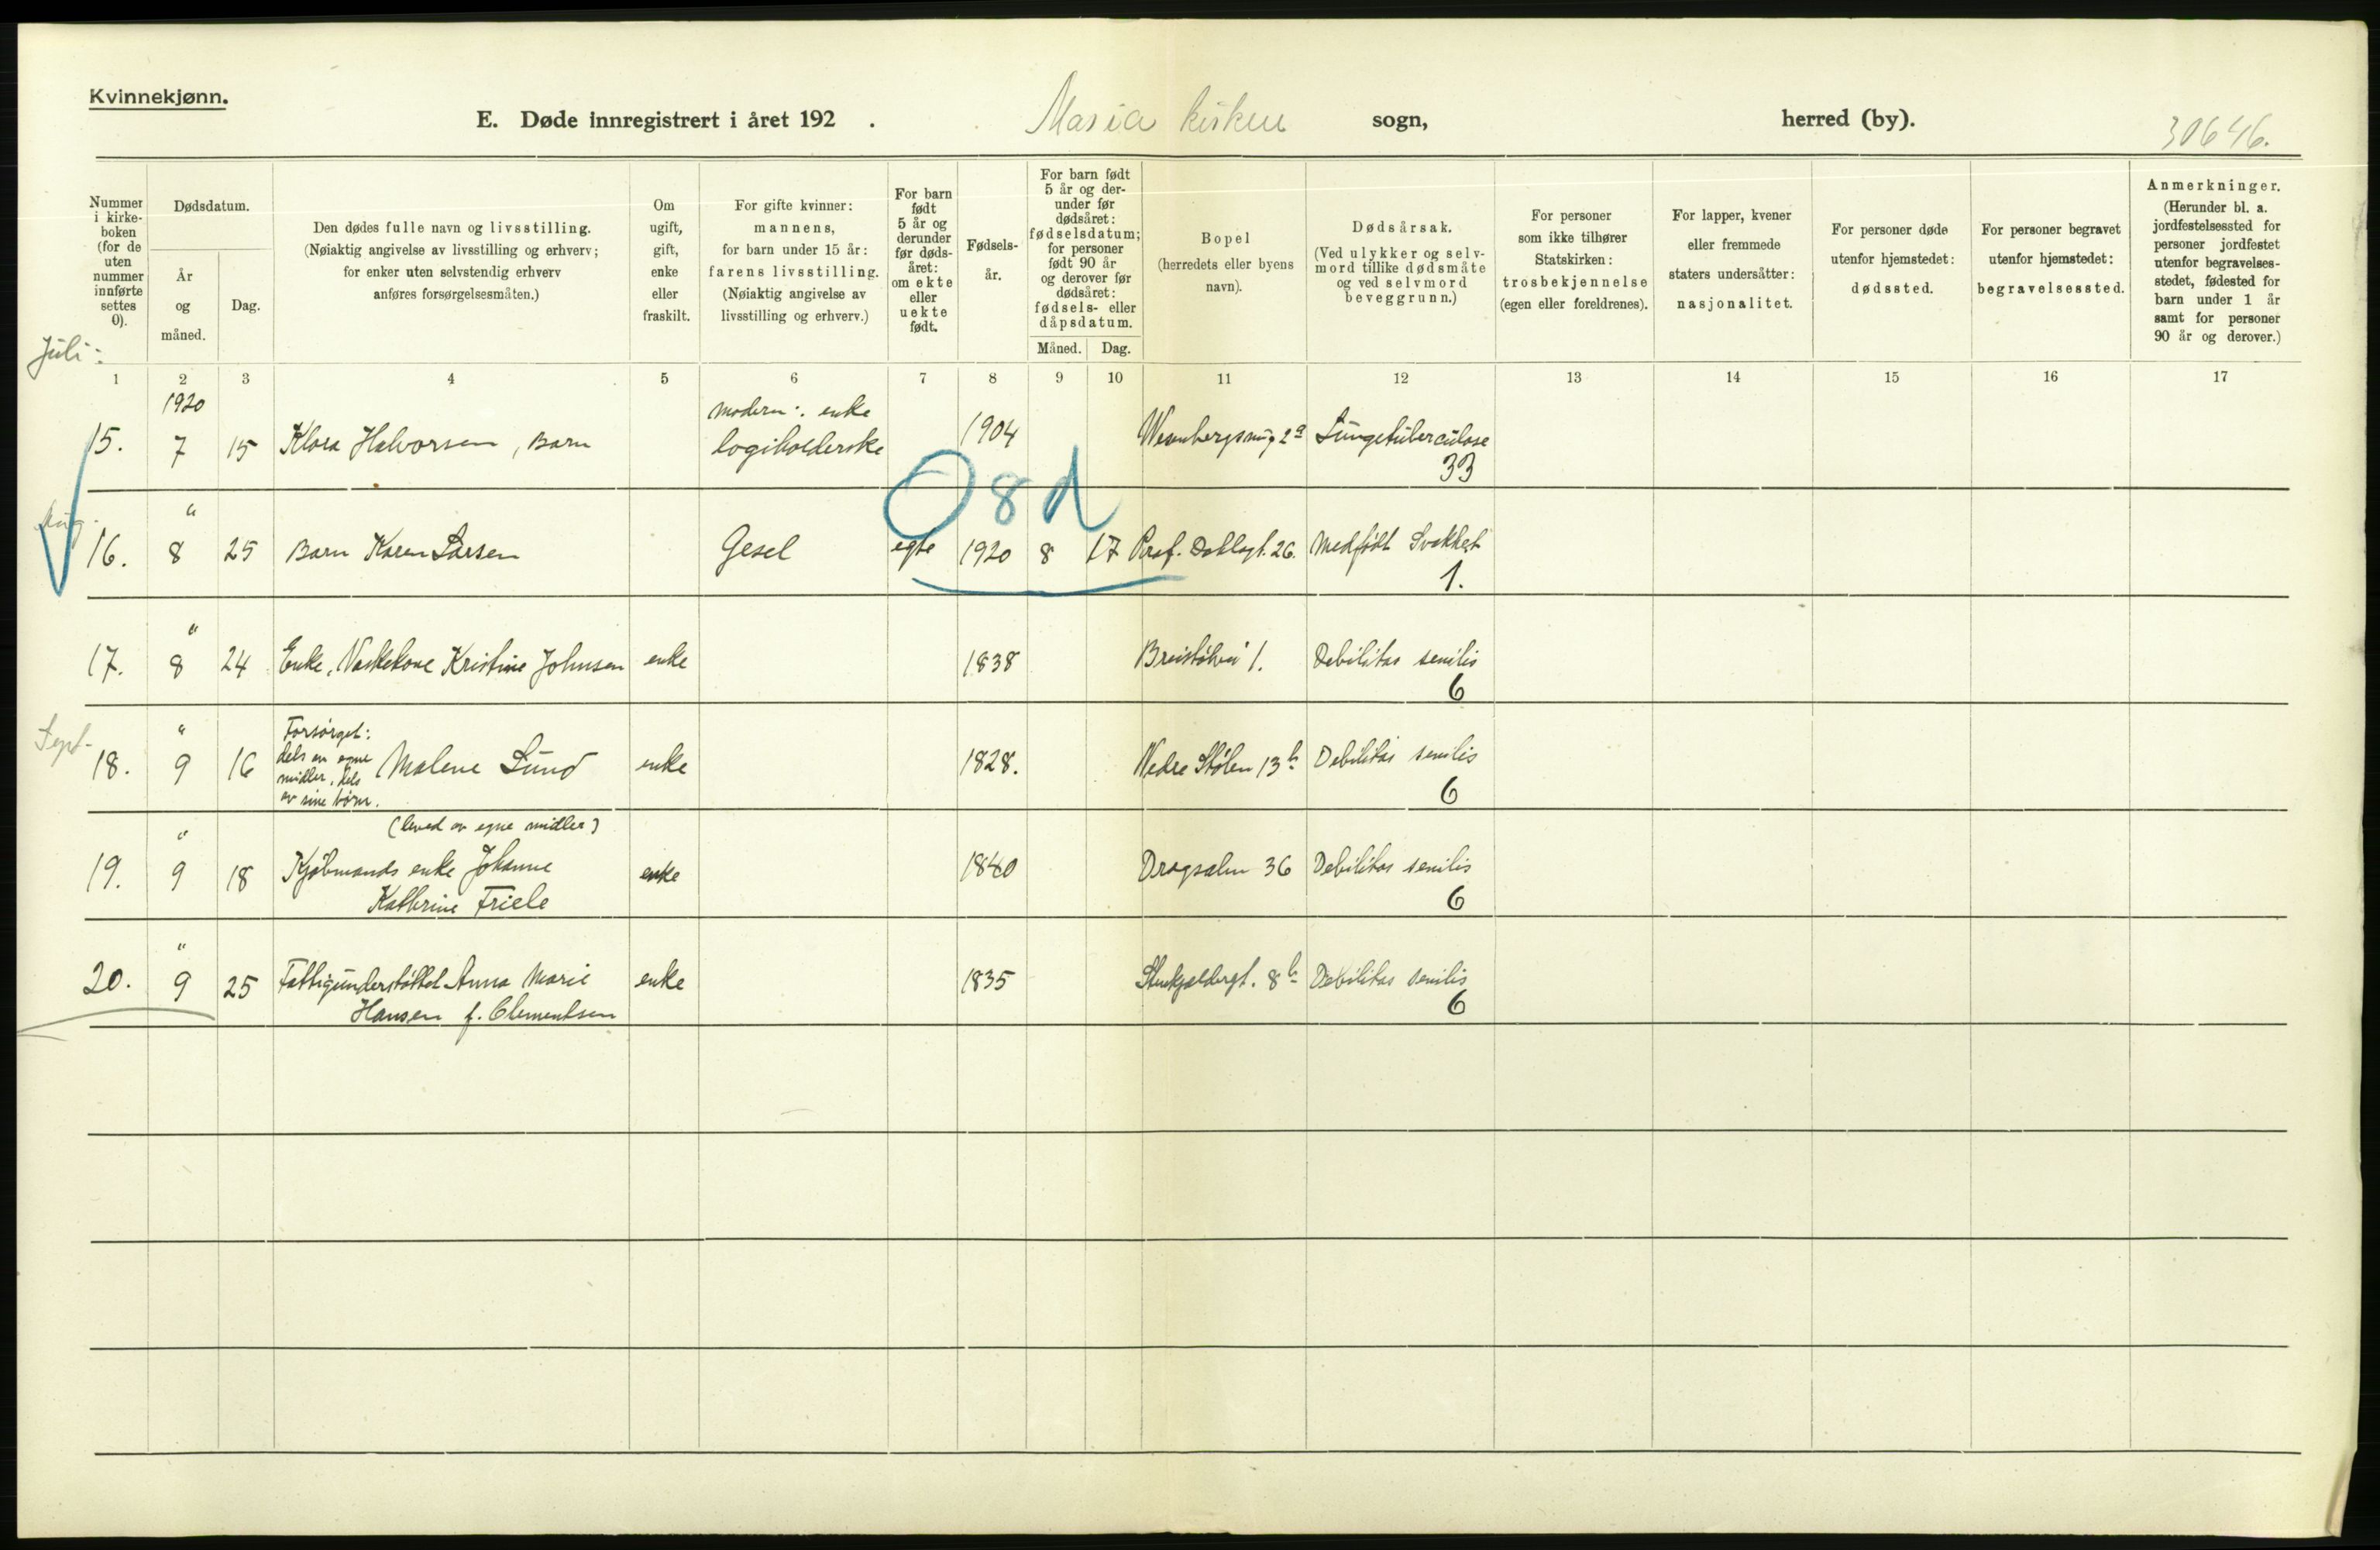 Kvinnekjønn.
E. Døde innregistrert i året 192 . Maria kirken sogn, herred (by). 30646.
Nummer i kirke- boken (for de uten nummer innførte settes 0).
Dødsdatum.
År og måned.
Dag.
Den dødes fulle navn og livsstilling.
(Nøiaktig angivelse av livsstilling og erhverv;
for enker uten selvstendig erhverv
anføres forsørgelsesmåten.)
Om ugift, gift, enke eller fraskilt.
For gifte kvinner:
mannens,
for barn under 15 år:
farens livsstilling.
(Nøiaktig angivelse av
livsstilling og erhverv.)
For barn født 5 år og derunder før døds- året: om ekte eller uekte født.
Fødsels- år.
For barn født 5 år og der- under før dødsåret: fødselsdatum; for personer født 90 år og derover før dødsåret: fødsels- eller dåpsdatum.
Måned. Dag.
Bopel
(herredets eller byens
navn).
Dødsårsak.
(Ved ulykker og selv-
mord tillike dødsmåte
og ved selvmord
beveggrunn.)
For personer
som ikke tilhører
Statskirken:
trosbekjennelse
(egen eller foreldrenes).
For lapper, kvener
eller fremmede
staters undersåtter:
nasjonalitet.
For personer døde
utenfor hjemstedet:
dødssted.
For personer begravet
utenfor hjemstedet:
begravelsessted.
Anmerkninger.
(Herunder bl. a.
jordfestelsessted for
personer jordfestet
utenfor begravelses-
stedet, fødested for
barn under 1 år
samt for personer
90 år og derover.)
Juli:
1 2 3 4 5 6 7 8 9 10 11 12 13 14 15 16 17
1920 modern: enke
15. 7 15 Klara Halvorsen, Barn logiholderske 1904 Wesenbergsmug 2a Lungetuberculose
33
O 8 d
Aug.
"
16. 8 25 Barn Karen Larsen Gesel egte 1920 8 17 Prof. Dahlsgt. 26. Medfødt Svakhet
1.
"
17. 8 24 Enke, Vaskekone Kristine Johnsen enke 1838 Breistølvei 1. Debilitas senilis
6
Sept-
" Forsørget:
dels av egne
midler, dels
av sine børn.
18. 9 16 Malene Lund enke 1828. Nedre Stølen 13b Debilitas senilis
6
" (leved av egne midler)
19. 9 18 Kjøbmands enke Johanne enke 1840 Dragsalm 36 Debilitas senilis
Kathrine Friele 6
"
20. 9 25 Fattigunderstøttet Anna Marie enke 1835 Stenkjeldergt. 8b Debilitas senilis
Hansen f. Clementsen 6